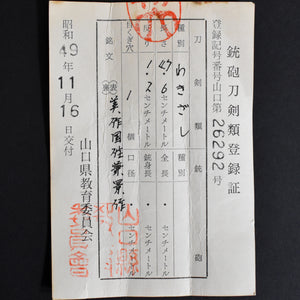 銃砲刀剣類登録証
登録記号番号山口第26292号
刀剣類
銃砲
種別
わきざし
種別
長さ
47.6センチメートル
全長
センチメートル
反り
1.2センチメートル
銃身長
センチメートル
目くぎ穴
1個
口径
センチメートル
銘文
表
裏
昭和49年11月16日交付
山口県教育委員会